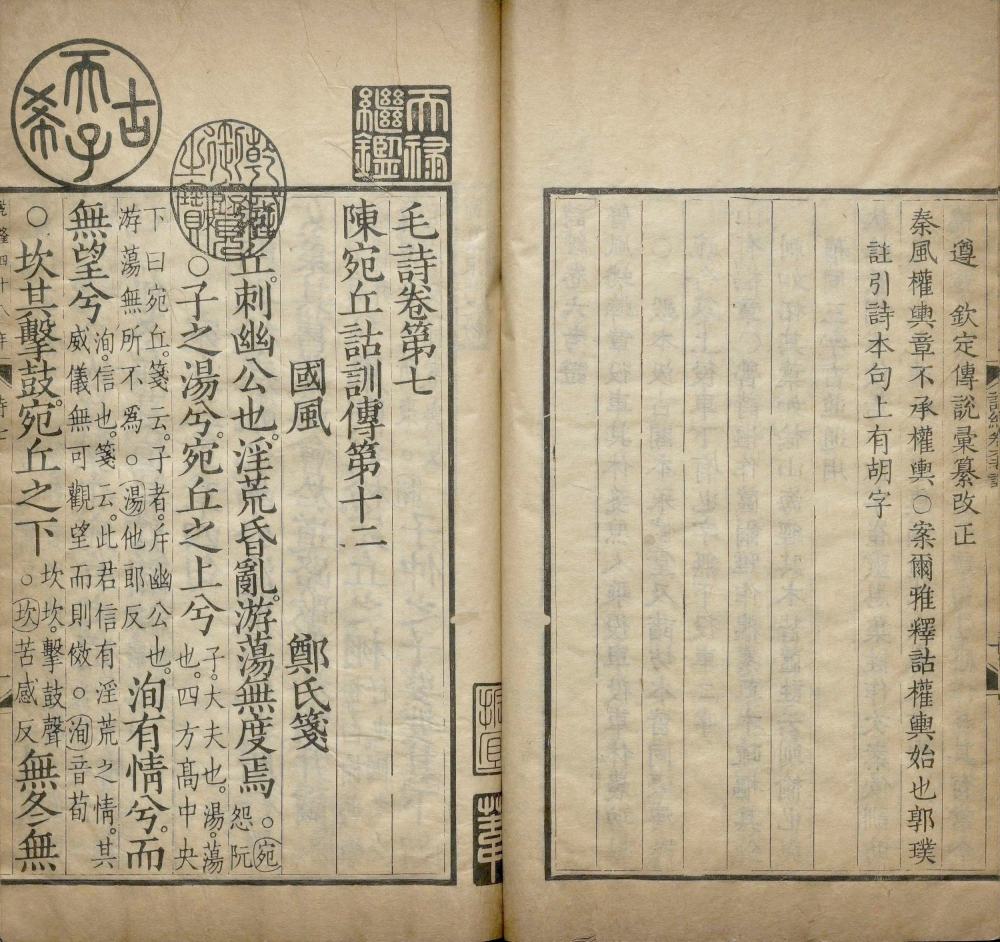 遵　欽定傳說彙纂改正
秦風權輿章不承權輿○案爾雅釋詁權輿始也郭璞
註引詩本句上有胡字
天祿
繼鑑
古
天子
希
乾隆
御覽
之寶
毛詩卷第七
陳宛丘詁訓傳第十二
國風　鄭氏箋
丘。刺幽公也。淫荒昏亂。游蕩無度焉。○宛
怨阮
○子之湯兮。宛丘之上兮
子。大夫也。湯。蕩
也。四方高中央
下曰宛丘。箋云。子者。斥幽公也。
游蕩無所不為。○湯他郎反
洵有情兮。而
無望兮
洵。信也。箋云。此君信有淫荒之情。其
威儀無可觀望而則傚。○洵音荀
○坎其擊鼓。宛丘之下
坎坎。擊鼓聲
○坎苦感反
無冬無